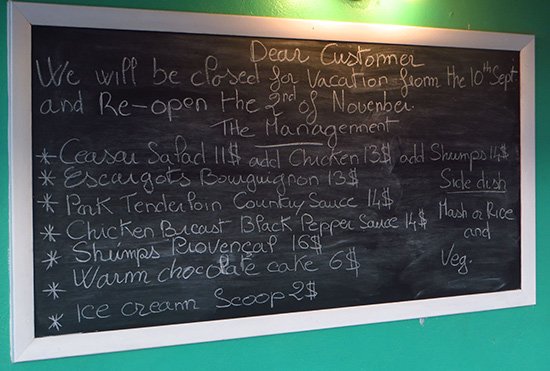 Dear Customer
We will be closed for Vacation from the 10th Sept.
and Re-open the 2nd of November.
The Management
* Ceasar Salad 11$ add Chicken 13$ add Shrimps 14$
* Escargots Bourguignon 13$
* Pork Tenderloin Country Sauce 14$
* Chicken Breast Black Pepper Sauce 14$
* Shrimps Provençal 16$
* Warm chocolate cake 6$
* Ice cream Scoop 2$
Side dish
Mash or Rice
and
Veg.